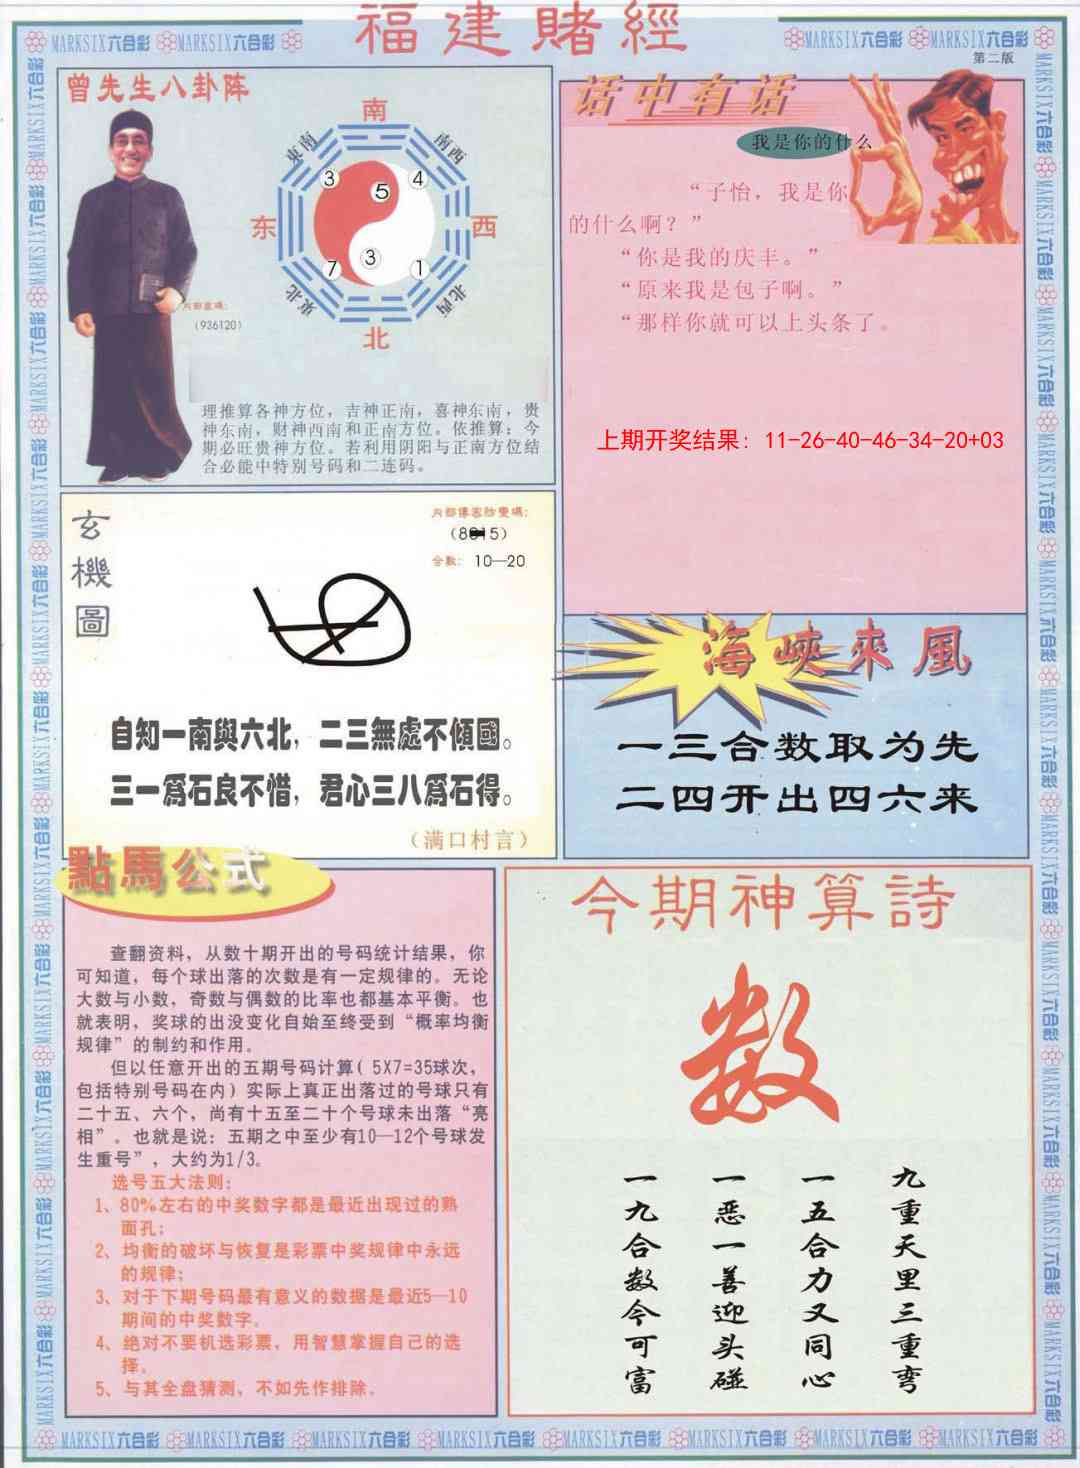 福建賭經
MARKSIX六合彩 MARKSIX六合彩
MARKSIX六合彩 MARKSIX六合彩
第二版
曾先生八卦阵
南
東南
南西
3
5
4
东
西
7
3
1
東北
北西
北
内部直碼:
(936120)
理推算各神方位，吉神正南，喜神东南，贵
神东南，财神西南和正南方位。依推算：今
期必旺贵神方位。若利用阴阳与正南方位结
合必能中特别号码和二连码。
话中有话
我是你的什么
“子怡，我是你
的什么啊？”
“你是我的庆丰。”
“原来我是包子啊。”
“那样你就可以上头条了。
上期开奖结果：11-26-40-46-34-20+03
玄機圖
合数: 10—20
自知一南與六北，二三無處不傾國。
三一為石良不惜，君心三八為石得。
（满口村言）
海峽來風
一三合数取为先
二四开出四六来
點馬公式
查翻资料，从数十期开出的号码统计结果，你
可知道，每个球出落的次数是有一定规律的。无论
大数与小数，奇数与偶数的比率也都基本平衡。也
就表明，奖球的出没变化自始至终受到“概率均衡
规律”的制约和作用。
但以任意开出的五期号码计算( 5X7=35球次，
包括特别号码在内）实际上真正出落过的号球只有
二十五、六个，尚有十五至二十个号球未出落“亮
相”。也就是说：五期之中至少有10—12个号球发
生重号”，大约为1/3。
选号五大法则：
1、80%左右的中奖数字都是最近出现过的熟
面孔；
2、均衡的破坏与恢复是彩票中奖规律中永远
的规律；
3、对于下期号码最有意义的数据是最近5—10
期间的中奖数字。
4、绝对不要机选彩票，用智慧掌握自己的选
择。
5、与其全盘猜测，不如先作排除。
今期神算詩
数
九重天里三重弯
一五合力又同心
一恶一善迎头碰
一九合数今可富
MARKSIX六合彩 MARKSIX六合彩 MARKSIX六合彩 MARKSIX六合彩 MARKSIX六合彩 MARKSIX六合彩 MARKSIX六合彩 MARKSIX六合彩